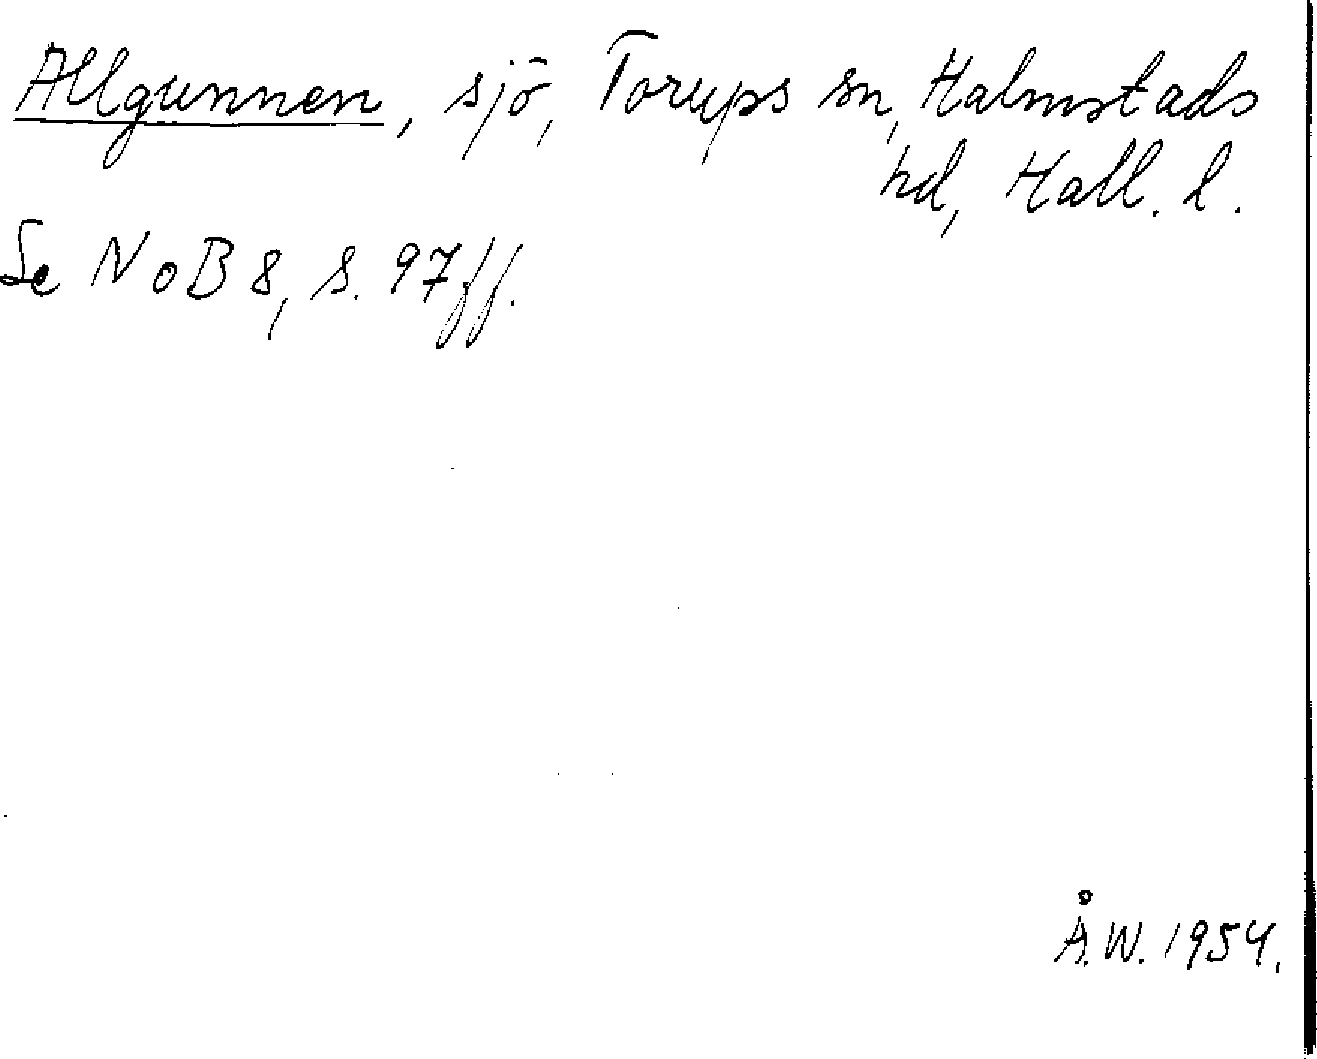 Allgunnen, sjö, Torups sn, Halmstads
hd, Hall. l.
Se NoB 8, s. 97 ff.
Å.W. 1954.